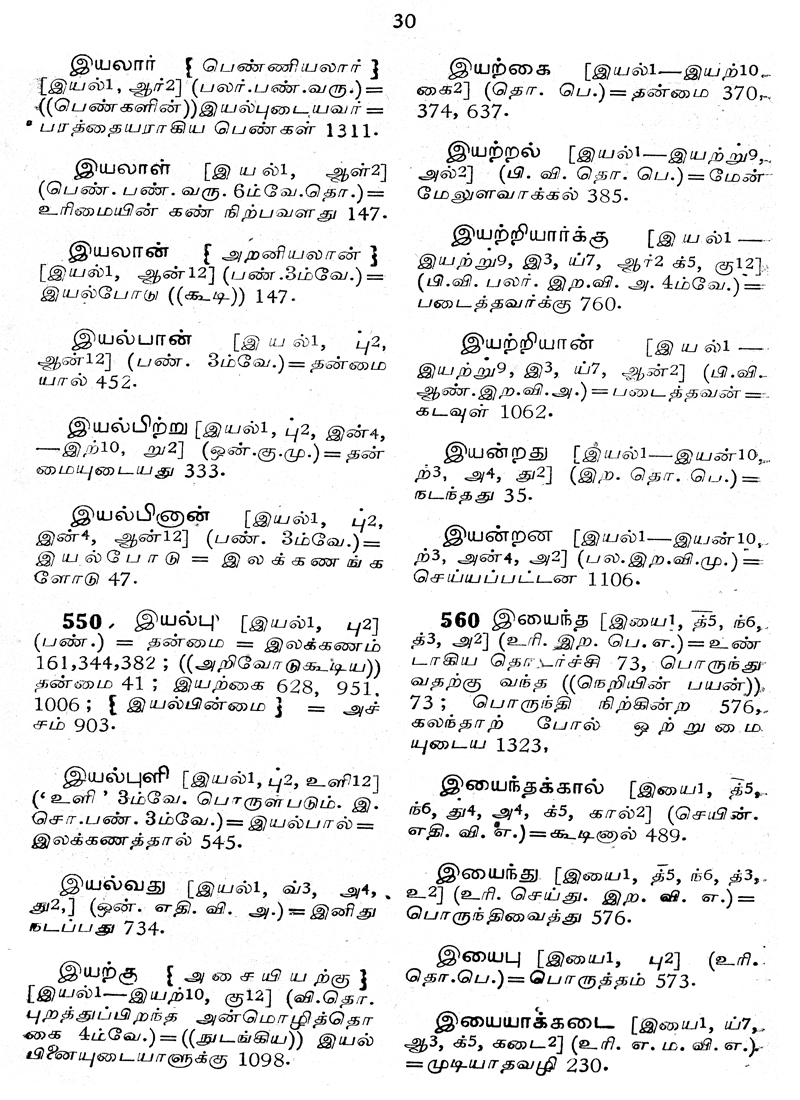 30
இயலார் { பெண்ணியலார் }
[இயல்1, ஆர்2] (பலர்.பண்.வரு.)=
((பெண்களின்))இயல்புடையவர்=
பரத்தையராகிய பெண்கள் 1311.
இயலாள் [இயல்1, ஆள்2]
(பெண். பண். வரு. 6ம்வே.தொ.)=
உரிமையின் கண் நிற்பவளது 147.
இயலான் { அறனியலான் }
[இயல்1, ஆன்12] (பண்.3ம்வே.)=
இயல்போடு ((கூடி)) 147.
இயல்பான் [இயல்1, ப்2,
ஆன்12] (பண். 3ம்வே.)=தன்மை
யால் 452.
இயல்பிற்று [இயல்1, ப்2, இன்4,
—இற்10, று2] (ஒன்.கு.மு.)=தன்
மையுடையது 333.
இயல்பினான் [இயல்1, ப்2,
இன்4, ஆன்12] (பண். 3ம்வே.)=
இயல்போடு = இலக்கணங்க
ளோடு 47.
550. இயல்பு [இயல்1, பு2]
(பண்.) = தன்மை = இலக்கணம்
161,344,382 ; ((அறிவோடுகூடிய))
தன்மை 41 ; இயற்கை 628, 951.
1006 ; { இயல்பின்மை } = அச்
சம் 903.
இயல்புளி [இயல்1, ப்2, உளி12]
(‘ உளி ’ 3ம்வே. பொருள்படும். இ.
சொ.பண். 3ம்வே.)=இயல்பால்=
இலக்கணத்தால் 545.
இயல்வது [இயல்1, வ்3, அ4,
து2,] (ஒன். எதி. வி. அ.)=இனிது
நடப்பது 734.
இயற்கு { அசையியற்கு }
[இயல்1—இயற்10, கு12] (வி.தொ.
புறத்துப்பிறந்த அன்மொழித்தொ
கை 4ம்வே.)=((நுடங்கிய)) இயல்
பினையுடையாளுக்கு 1098.
இயற்கை [இயல்1—இயற்10,
கை2] (தொ. பெ.)=தன்மை 370,
374, 637.
இயற்றல் [இயல்1—இயற்று9,
அல்2] (பி. வி. தொ. பெ.)=மேன்
மேலுளவாக்கல் 385.
இயற்றியார்க்கு [இயல்1—
இயற்று9, இ3, ய்7, ஆர்2 க்5, கு12]
(பி.வி. பலர். இற.வி. அ. 4ம்வே.)=
படைத்தவர்க்கு 760.
இயற்றியான் [இயல்1—
இயற்று9, இ3, ய்7, ஆன்2] (பி.வி.
ஆண்.இற.வி.அ.)=படைத்தவன்=
கடவுள் 1062.
இயன்றது [இயல்1—இயன்10,
ற்3, அ4, து2] (இற. தொ. பெ.)=
நடந்தது 35.
இயன்றன [இயல்1—இயன்10,
ற்3, அன்4, அ2] (பல.இற.வி.மு.)=
செய்யப்பட்டன 1106.
560 இயைந்த [இயை1, த்5, ந்6,
த்3, அ2] (உரி. இற. பெ.எ.)=உண்
டாகிய தொடர்ச்சி 73, பொருந்து
வதற்கு வந்த ((நெறியின் பயன்))
73 ; பொருந்தி நிற்கின்ற 576,
கலந்தாற் போல் ஒற்றுமை
யுடைய 1323,
இயைந்தக்கால் [இயை1, த்5,
ந்6, து4, அ4, க்5, கால்2] (செயின்.
எதி. வி. எ.)=கூடினால் 489.
இயைந்து [இயை1, த்5, ந்6, த்3,
உ2] (உரி. செய்து. இற. வி. எ.)=
பொருந்திவைத்து 576.
இயைபு [இயை1, பு2] (உரி.
தொ.பெ.)=பொருத்தம் 573.
இயையாக்கடை [இயை1, ய்7,
ஆ3, க்5, கடை2] (உரி. எ. ம. வி. எ.)
=முடியாதவழி 230.